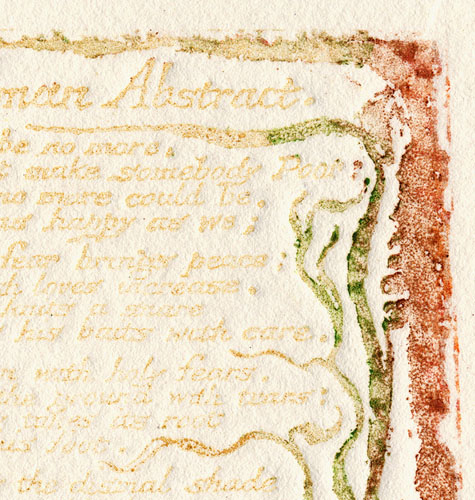 man Abstract.
be no more,
make somebody Poor:
no more could be,
as happy as we;
fear brings peace;
loves increase.
knits a snare
his baits with care.
with holy fears,
the ground with tears:
takes its root
foot.
the dismal shade